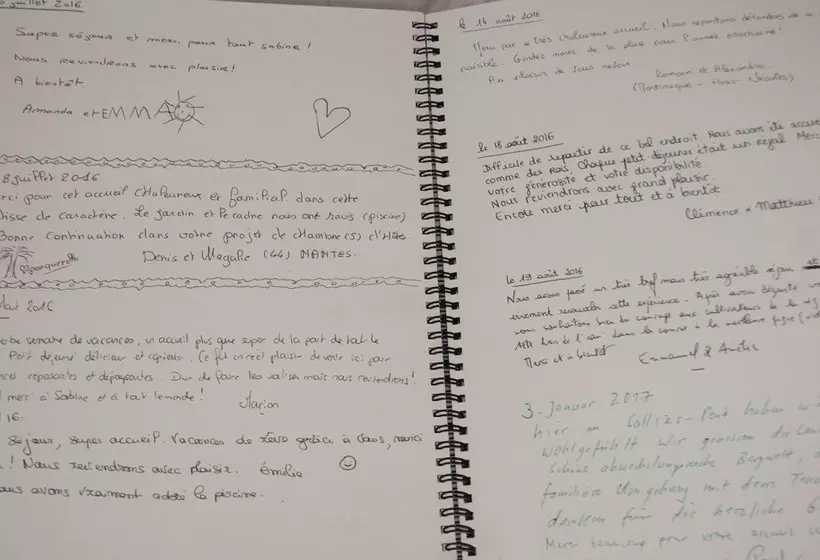 juillet 2016
Super séjour et merci pour tout Sabine !
Nous reviendrons avec plaisir !
A bientôt.
Amanda et EMMA
8 juillet 2016
ci pour cet accueil chaleureux et familial dans cette
de caractère. Le jardin et le cadre nous ont ravis (piscine)
Bonne continuation dans votre projet de chambre(s) d'Hôte
Denis et Magalie (44) NANTES.
2016
semaine de vacances, un accueil plus que super de la part de tout le
Petit déjeuner délicieux et copieux. Ce fut un réel plaisir de venir ici pour
reposantes et dépaysantes. Dur de faire les valises mais nous reviendrons !
merci à Sabine et à tout le monde !
Marion
16.
séjour, super accueil. Vacances de rêve grâce à vous, merci
! Nous reviendrons avec plaisir. Émilie
avons vraiment adoré la piscine.
le 14 août 2016
très chaleureux accueil. Nous repartons détendus de
paisible. Gardez nous de la place pour l'année prochaine !
Au plaisir de vous revoir.
Romain et Alexandra
(Martinique - Paris -
le 18 août 2016
Difficile de repartir de ce bel endroit. Nous avons été
comme des rois. Chaque petit déjeuner était un régal. Merci
votre générosité et votre disponibilité.
Nous reviendrons avec grand plaisir.
Encore merci pour tout et à bientôt
Clémence & Matthieu
le 19 août 2016
Nous avons passé un très bref mais très agréable séjour et
cette expérience. Après avoir dégusté
vous souhaitons bien du courage aux cultivateurs de la
tête dans la course à la meilleure figue
Merci et à bientôt
Emmanuel &
3. Januar 2017
hier in Solliès-Pont haben wi
wohlgefühlt. Wir
Schöne abwechslungsreiche
familiäre Umgebung mit dem
danken für die herzliche G
Merci beaucoup pour votre accueil